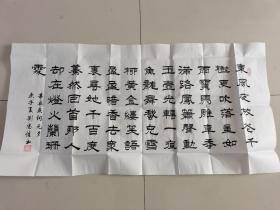 東風夜放花千
樹更吹落星如
雨寶馬雕車香
滿路鳳簫聲動
玉壺光轉一夜
魚龍舞蛾兒雪
柳黃金縷笑語
盈盈暗香去眾
裏尋她千百度
驀然回首那人
却在燈火闌珊
處
辛弃疾詞元夕
庚子夏劉